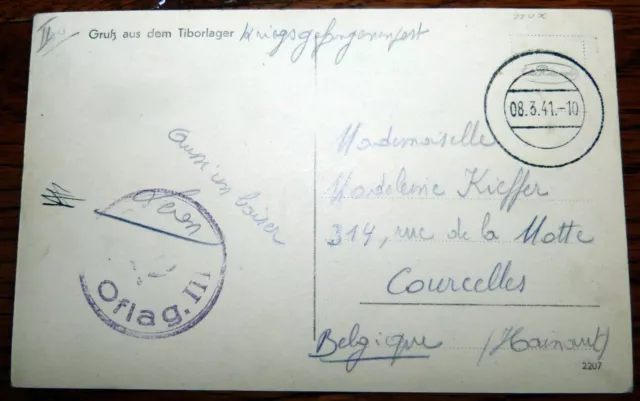 Gruß aus dem Tiborlager Kriegsgefangenenpost
08.3.41.-10
Aussi un baiser
Léon
Oflag. III
Mademoiselle
Madeleine Kieffer
314, rue de la Motte
Courcelles
Belgique (Hainaut)
2207